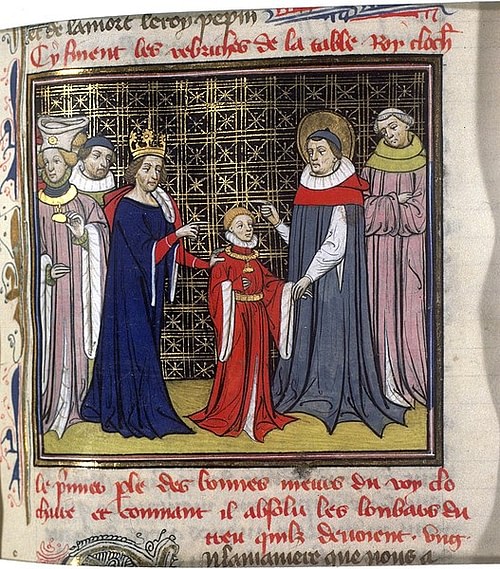 et de lamort leroy pepin
Cy finent les rebriches de la table Roy cloth
le p̃mier ple des bonnes meurs du roy clo
et commant il absolu les lonbars du
treu quilz devoient . vng .
lamaniere que nous a